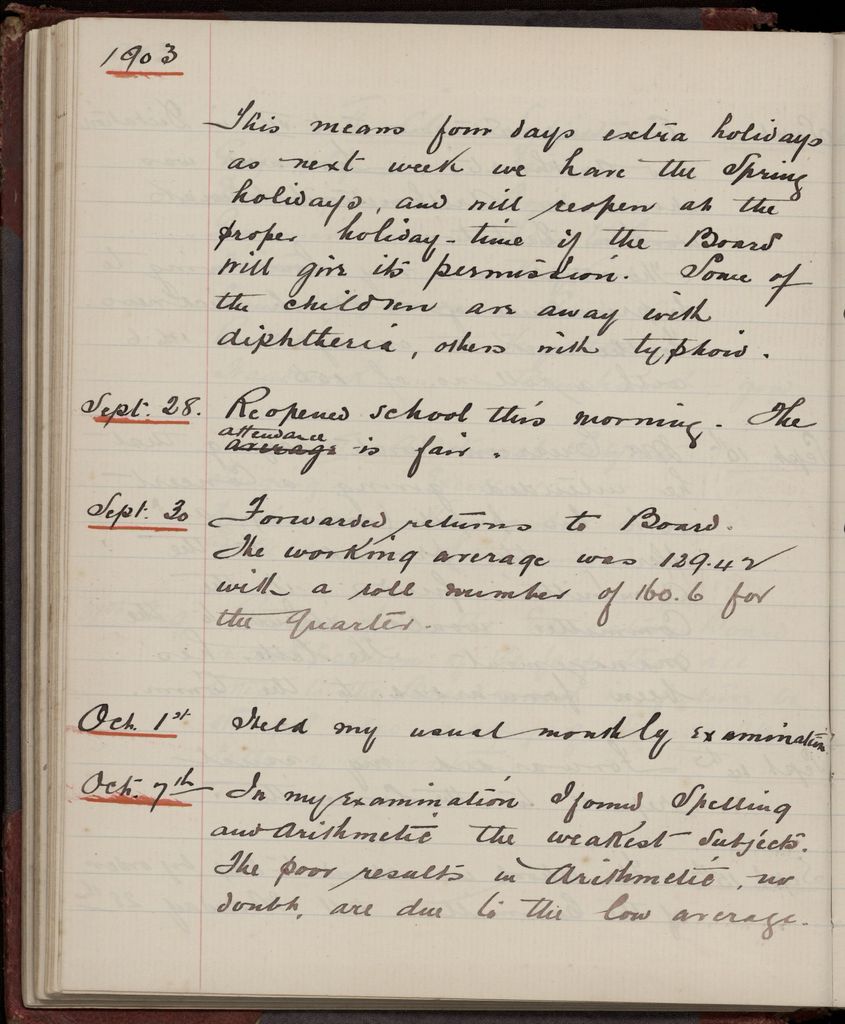 1903
This means four days extra holidays
as next week we have the Spring
holidays, and will reopen at the
proper holiday-time if the Board
will give its permission. Some of
the children are away with
diphtheria, others with typhoid.
Sept. 28. Reopened school this morning. The
attendance
average is fair.
Sept. 30 Forwarded returns to Board.
The working average was 129.42
with a roll number of 160.6 for
the Quarter.
Oct. 1st Held my usual monthly examination
Oct. 7th In my examination I found Spelling
and Arithmetic the weakest subjects.
The poor results in Arithmetic, no
doubt, are due to the low average.